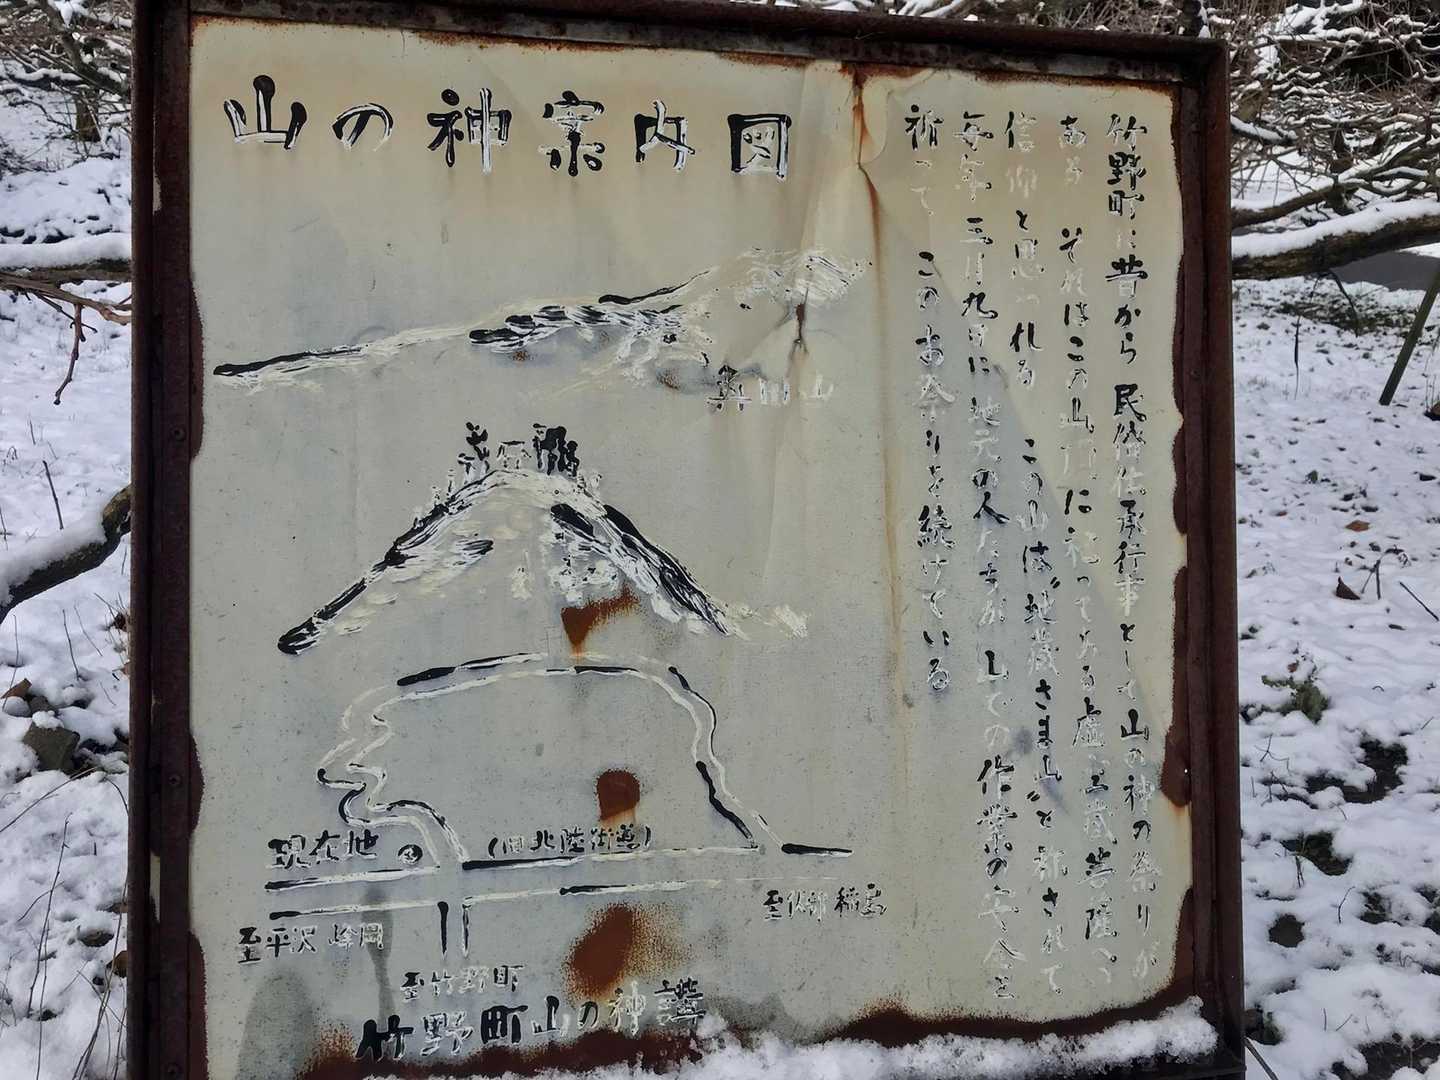 山の神案内図
竹野町に昔から 民俗伝承行事として山の神の祭りが
ある それはこの山頂に祀ってある虚空蔵菩薩への
信仰と思われる この山は〝地蔵さま山〟と称されて
毎年三月九日に地元の人たちが 山での作業の安全を
祈って このお祭りを続けている
奥田山
現在地
(旧北陸街道)
至平沢
至竹野町
竹野町山の神講